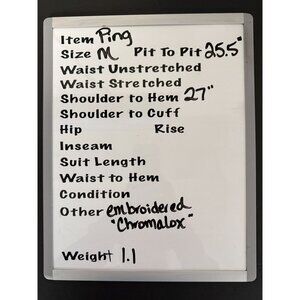 Item Ping
Size M Pit To Pit 25.5"
Waist Unstretched
Waist Stretched
Shoulder to Hem 27"
Shoulder to Cuff
Hip Rise
Inseam
Suit Length
Waist to Hem
Condition
Other embroidered
"Chromalox"
Weight 1.1